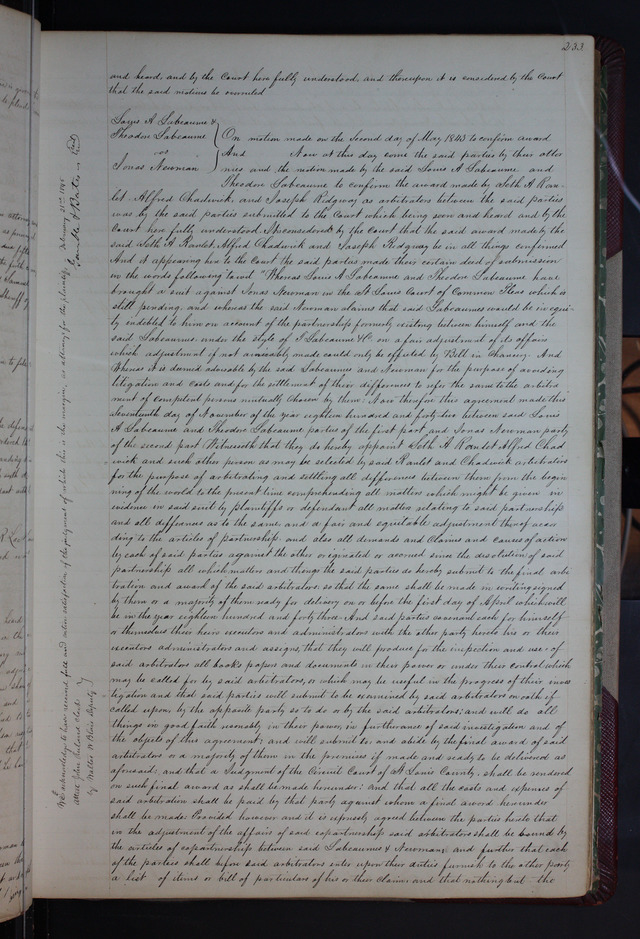 233
and heard, and by the Court here fully understood, and thereupon it is considered by the Court
that the said motions be overruled
Louis A Labeaume &
Theodore Labeaume
vs
Jonas Newman
On motion made on the Second day of May 1843 to confirm award
And Now at this day come the said parties by their attor
nies and the motion made by the said Louis A Labeaume and
Theodore Labeaume to confirm the award made by Seth A Ran-
let Alfred Chadwick, and Joseph Ridgway as arbitrators between the said parties
was by the said parties submitted to the Court which being seen and heard and by the
Court here fully understood, It is considered by the Court that the said award made by the
said Seth A Ranlet Alfred Chadwick and Joseph Ridgway be in all things confirmed
And it appearing to the Court the said parties made their certain deed of submission
in the words following to wit "Whereas Louis A Labeaume and Theodore Labeaume have
brought a suit against Jonas Newman in the St Louis Court of Common Pleas which is
still pending, and whereas the said Newman claims that said Labeaumes would be in equi-
ty indebted to him on account of the partnership formerly existing between himself and the
said Labeaumes under the style of Labeaume & Co on a fair adjustment of its affairs
which adjustment if not amicably made could only be effected by Bill in Chancery. And
Whereas it is deemed advisable by the said Labeaumes and Newman for the purpose of avoiding
litigation and costs and for the settlement of their differences to refer the same to the arbitra
ment of competent persons mutually chosen by them: Now therefore this agreement made this
seventeenth day of November of the year eighteen hundred and forty two between said Louis
A Labeaume and Theodore Labeaume parties of the first part and Jonas Newman party
of the second part Witnesseth that they do hereby appoint Seth A Ranlet Alfred Chad
wick and such other person as may be selected by said Ranlet and Chadwick arbitrators
for the purpose of arbitrating and settling all differences between them from the begin
ning of the world to the present time comprehending all matters which might be given in
evidence in said suit by plaintiffs or defendant all matters relating to said partnership
and all differences as to the same and a fair and equitable adjustment thereof accor
ding to the articles of partnership and also all demands and claims and causes of action
by each of said parties against the other originated or accrued since the dissolution of said
partnership all which matters and things the said parties do hereby submit to the final arbi
tration and award of the said arbitrators so that the same shall be made in writing signed
by them or a majority of them ready for delivery on or before the first day of April which will
be in the year eighteen hundred and forty three. And said parties covenant each for himself
or themselves their heirs executors and administrators with the other party hereto his or their
executors administrators and assigns that they will produce for the inspection and use of
said arbitrators all books papers and documents in their power or under their control which
may be called for by said arbitrators, or which may be useful in the progress of their inves
tigation and that said parties will submit to be examined by said arbitrators on oath if
called upon by the opposite party so to do or by the said arbitrators; and will do all
things in good faith reasonably in their power, in furtherance of said investigation and of
the objects of this agreement; and will submit to and abide by the final award of said
arbitrators or a majority of them in the premises if made and ready to be delivered as
aforesaid; and that a Judgment of the Circuit Court of St Louis County shall be rendered
on such final award as shall be made hereunder: and that all the costs and expenses of
said arbitration shall be paid by that party against whom a final award hereunder
shall be made: Provided however and it is expressly agreed between the parties hereto that
in the adjustment of the affairs of said copartnership said arbitrators shall be bound by
the articles of copartnership between said Labeaumes & Newman; and further that each
of the parties shall before said arbitrators enter upon their duties furnish to the other party
a list of items or bill of particulars of his or their claims and that nothing but the
We acknowledge to have received full and entire satisfaction of the judgment of which this is the margin, as attorneys for the plaintiffs, February 25th 1845
attest John Ruland Clerk
by Walter Deputy
Gamble & Bates